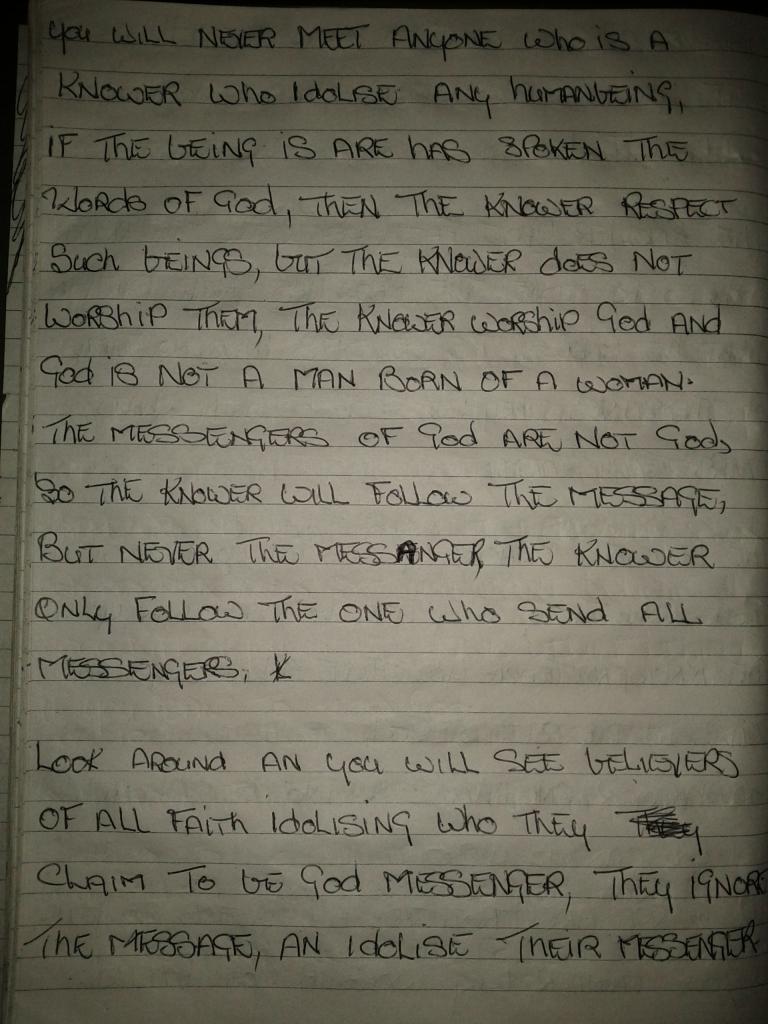 you WILL NEVER MEET ANyONE who is A
KNOWER who IdOLISE ANy humanbeing,
IF THE bEING IS ARE hAS SPOKEN THE
Words OF God, THEN THE KNOWER RESPECT
Such bEINGS, buT THE KNOWER doES NOT
WORShip THEM, THE KNOWER worship God AND
God is NOT A MAN BORN OF A WOMAN.
THE MESSENGERS OF God ARE NOT God,
SO THE KNOWER WILL Follow THE MESSAGE,
BUT NEVER THE MESSANGER, THE KNOWER
ONLy Follow THE ONE who SEND ALL
MESSENGERS,
Look AROUND AN you WILL SEE bELIEVERS
OF ALL FAITH IdOLISING who THEy
CLAIM TO bE God MESSENGER, THEy IGNORE
THE MESSAGE, AN IdOLISE THEIR MESSENGER